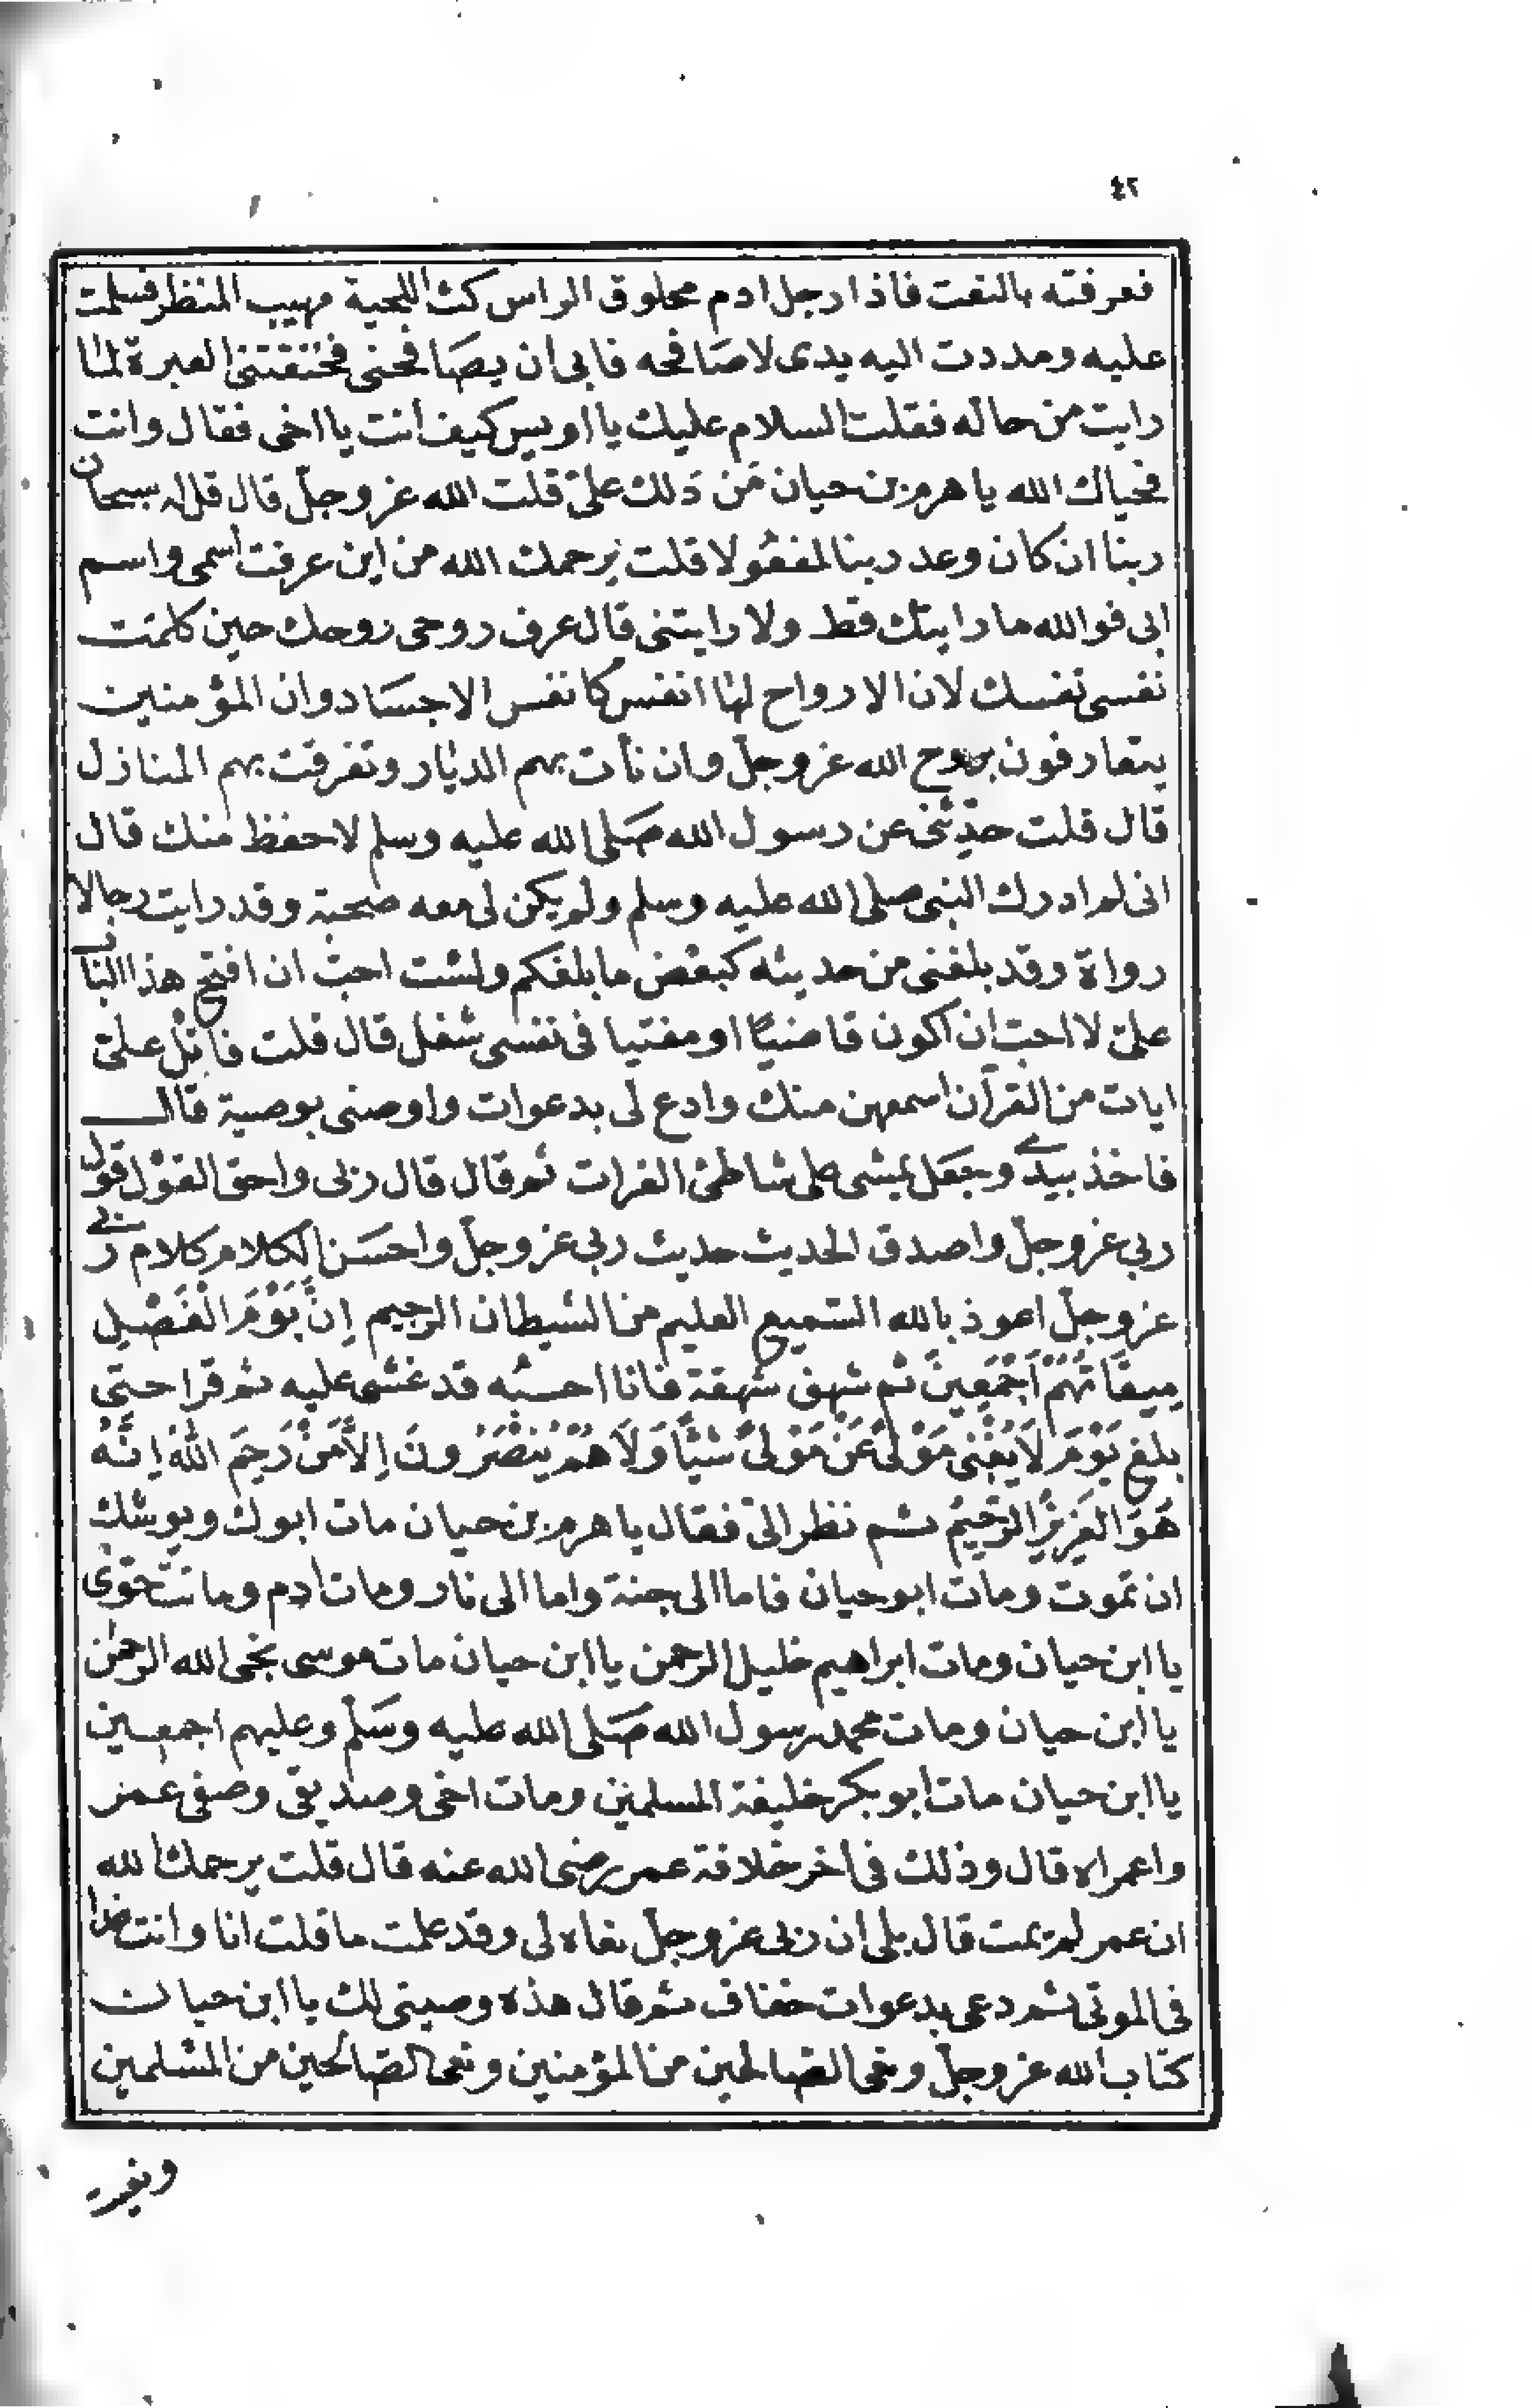 ٤٢
فعرفته بالنعت فاذا رجل ادم محلوق الراس كث اللحية مهيب المنظر فسلمت
عليه ومددت اليه يدى لاصافحه فابى ان يصافحنى فخنقتنى العبرة لما
رايت من حاله فقلت السلام عليك يا اويس كيف أنت يا اخى فقال وانت
فحياك الله يا هرم بن حيان مَن دَلك علىّ قلت الله عز وجلّ قال قل له سبحان
ربنا ان كان وعد ربنا لمفعُولا قلت يرحمك الله من اين عرفت اسمى واسم
ابى فوالله ما رايتك قط ولا رايتنى قال عرف روحى روحك حين كلمت
نفسى نفسك لان الارواح لها انفس كانفس الاجسَاد وان المؤمنين
يتعارفون بروح الله عز وجلّ وان نأت بهم الديار وتفرقت بهم المنازل
قال قلت حدّثنى عن رسول الله صَلى الله عليه وسلم لاحفظ منك قال
انى لم ادرك النبى صلى الله عليه وسلم ولم يكن لى معه صحبة وقد رايت رجالا
رواة وقد بلغنى من حديثه كبعض ما بلغكم ولست احبّ ان افتح هذا الباب
علىّ لا احبّ ان اكون قاضيًا او مفتيا فى نفسى شغل قال قلت فاتل علىّ
ايات من القرآن اسمعهن منك وادع لى بدعوات واوصنى بوصية قال
فاخذ بيدى وجَعَل يمشى على شاطئ الفرات ثم قال قال ربى واحق القوْل قول
ربى عز وجلّ واصدق الحديث حديث ربى عز وجلّ واحسَن الكلام كلام ربى
عز وجلّ اعوذ بالله السّميع العليم من الشيطان الرجيم اِنَّ يَوْمَ الْفَصْلِ
مِيقَاتُهُمْ اَجْمَعِينَ ثم شهق شهقة فانا احسبُه قد غشى عليه ثم قرا حتى
بلغ يَوْمَ لَا يُغْنِى مَوْلىً عَنْ مَوْلىً شَيْئًا وَلَا هُمْ يُنْصَرُونَ اِلَّا مَنْ رَحِمَ اللهُ اِنَّهُ
هُوَ العَزِيزُ الرَّحِيمُ ثم نظر الىّ فقال يا هرم بن حيان مات ابوك ويوشك
ان تموت ومات ابو حيان فاما الى جنة واما الى نار ومات ادم وماتت حوّى
يا ابن حيان ومات ابراهيم خليل الرحمن يا ابن حيان مات موسى نجى الله الرحمن
يا ابن حيان ومات محمد رسول الله صَلى الله عليه وسَلّم وعليهم اجمعين
يا ابن حيان مات ابو بكر خليفة المسلمين ومات اخى وصديقى وصفى عمر
واعمراه قال وذلك فى آخر خلافة عمر رضى الله عنه قال قلت يرحمك الله
ان عمر لم يمت قال بلى ان ربى عز وجلّ نعاه لى وقد علمت ما قلت انا وانت غدا
فى الموتى ثم دعى بدعوات خفاف ثم قال هذه وصيتى لك يا ابن حيان
كتاب الله عز وجلّ ونعى الصالحين من المؤمنين ونعى الصَالحين من المسلمين